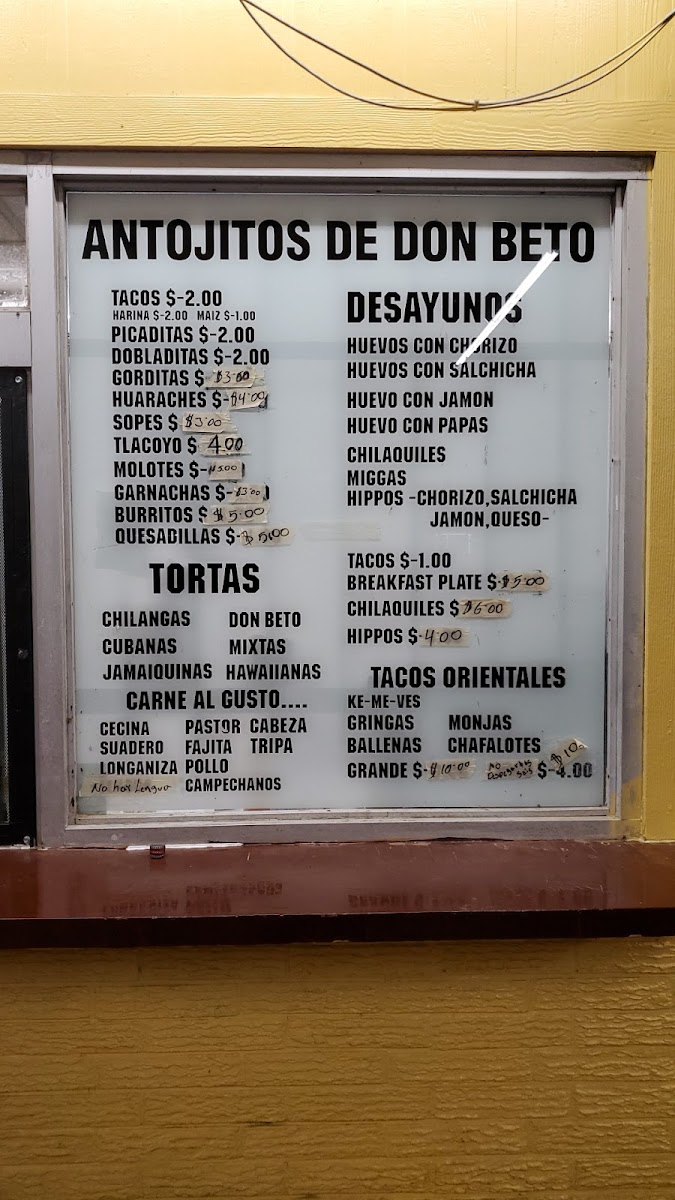 ANTOJITOS DE DON BETO
TACOS $-2.00
HARINA $-2.00 MAIZ $-1.00
PICADITAS $-2.00
DOBLADITAS $-2.00
GORDITAS $ $3.00
HUARACHES $-$4.00
SOPES $ $3.00
TLACOYO $ 4.00
MOLOTES $-$5.00
GARNACHAS $-$3.00
BURRITOS $ $5.00
QUESADILLAS $-$5.00
TORTAS
CHILANGAS DON BETO
CUBANAS MIXTAS
JAMAIQUINAS HAWAIIANAS
CARNE AL GUSTO....
CECINA PASTOR CABEZA
SUADERO FAJITA TRIPA
LONGANIZA POLLO
No hay Lengua CAMPECHANOS
DESAYUNOS
HUEVOS CON CHORIZO
HUEVOS CON SALCHICHA
HUEVO CON JAMON
HUEVO CON PAPAS
CHILAQUILES
MIGGAS
HIPPOS -CHORIZO,SALCHICHA
JAMON,QUESO-
TACOS $-1.00
BREAKFAST PLATE $-$5.00
CHILAQUILES $ $6.00
HIPPOS $-4.00
TACOS ORIENTALES
KE-ME-VES
GRINGAS MONJAS
BALLENAS CHAFALOTES
GRANDE $-$10.00 NO $-4.00
$10.